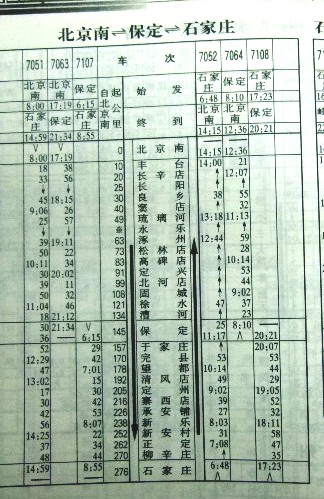 北京南⇌保定⇌石家庄
7051 7063 7107 车 次 7052 7064 7108
北京南 北京南 保定 自北京南起公里 始 发 石家庄 保定 石家庄
8:00 17:19 6:15 6:48 8:10 17:23
石家庄 保定 石家庄 终 到 北京南 北京南 保定
14:59 21:34 8:55 14:15 12:36 20:21
8:00 17:19 0 北京南 14:15 12:36
18 38 10 丰台 14:00 21
33 56 20 长辛店 ↑ 12:07
↓ ↓ 25 长阳 ↑ ↑
45 18:15 30 良乡 38 55
9:06 26 40 窦店 ↑ ↑
25 57 49 琉璃河 13:18 11:13
↓ ↓ ※ 永乐 ↑ ↑
39 19:11 63 涿州 12:44 59
50 22 73 松林店 ↑ 28
10:11 34 83 高碑店 ↑ 10:14
30 20:02 91 定兴 ↑ 53
39 11 99 北河店 ↑ 44
50 32 108 固城 ↑ 9:02
11:04 46 121 徐水 47 37
18 21:12 134 漕河 ↑ 23
30 21:34 145 保定 25 8:10
36 6:15 11:17 20:21
52 29 157 于家庄 ↑ 20:07
12:29 42 170 完县 53 53
47 7:01 178 望都 10:14 44
13:02 15 192 清风店 49 29
17 30 205 定州 9:02 19:05
30 42 216 寨西店 39 52
42 53 226 承安铺 27 32
56 8:07 238 新乐 8:03 18:11
14:25 22 252 新安村 31 58
37 34 262 正定 7:08 47
48 44 270 柳辛庄 ↑ 35
14:59 8:55 276 石家庄 6:48 17:23